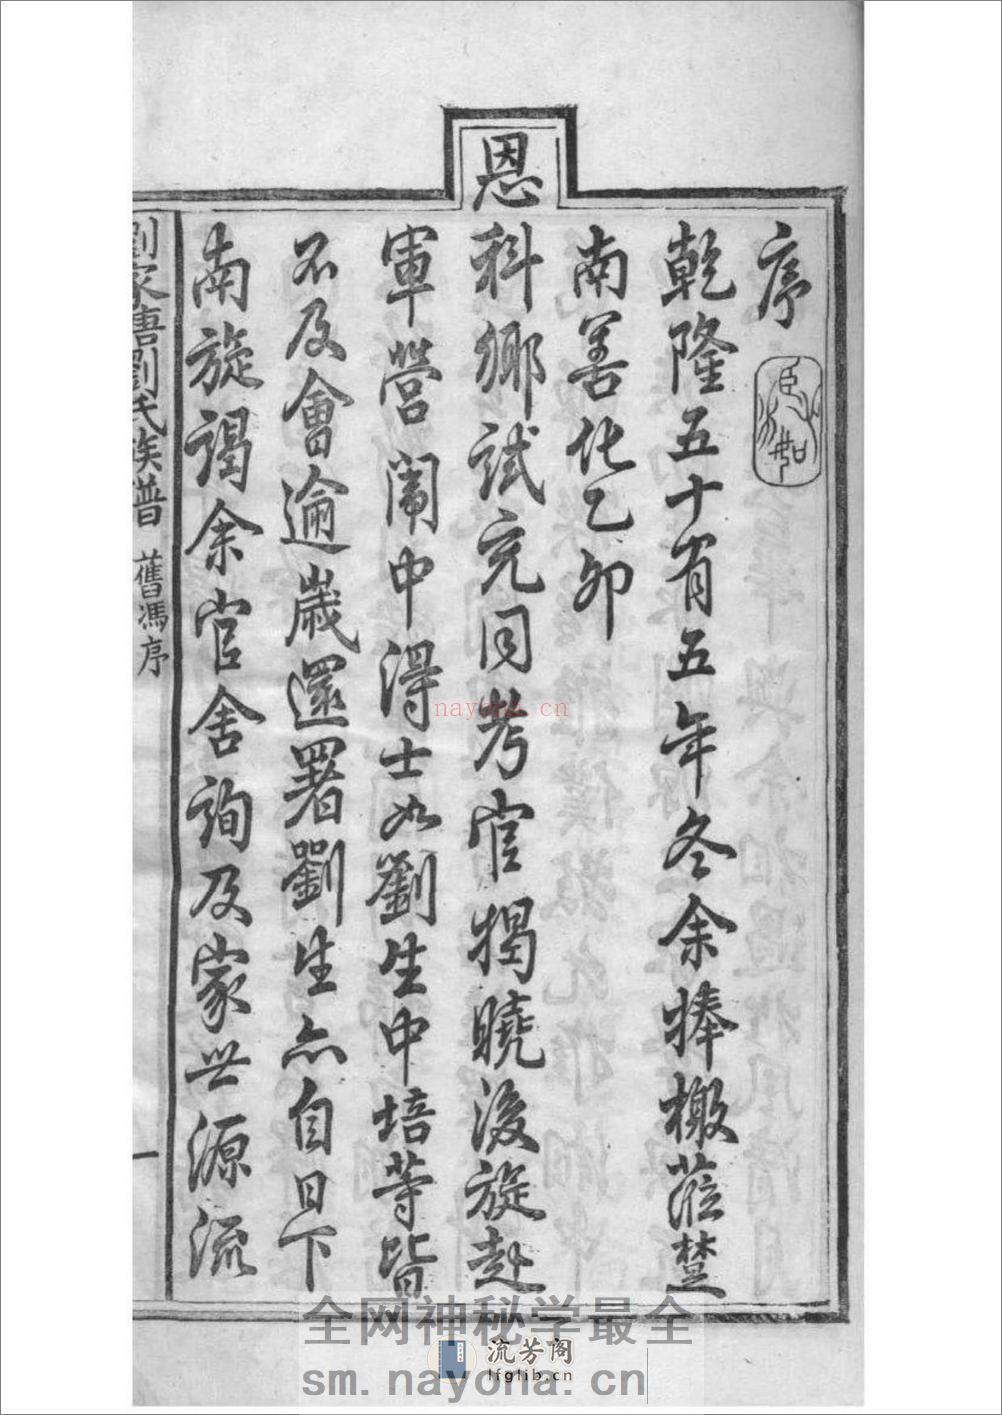 序
乾隆五十有五年冬余捧檄蒞楚
南善化乙卯
恩科鄉試充同考官揭曉後旋赴
軍營闈中得士如劉生中培等皆
不及會逾歲還署劉生亦自日下
南旋謁余官舍詢及家世源流
劉家唐劉氏族譜 舊馮序
一
nayona.cn
全网神秘学最全
流芳阁
lfglib.cn
sm.nayona.cn